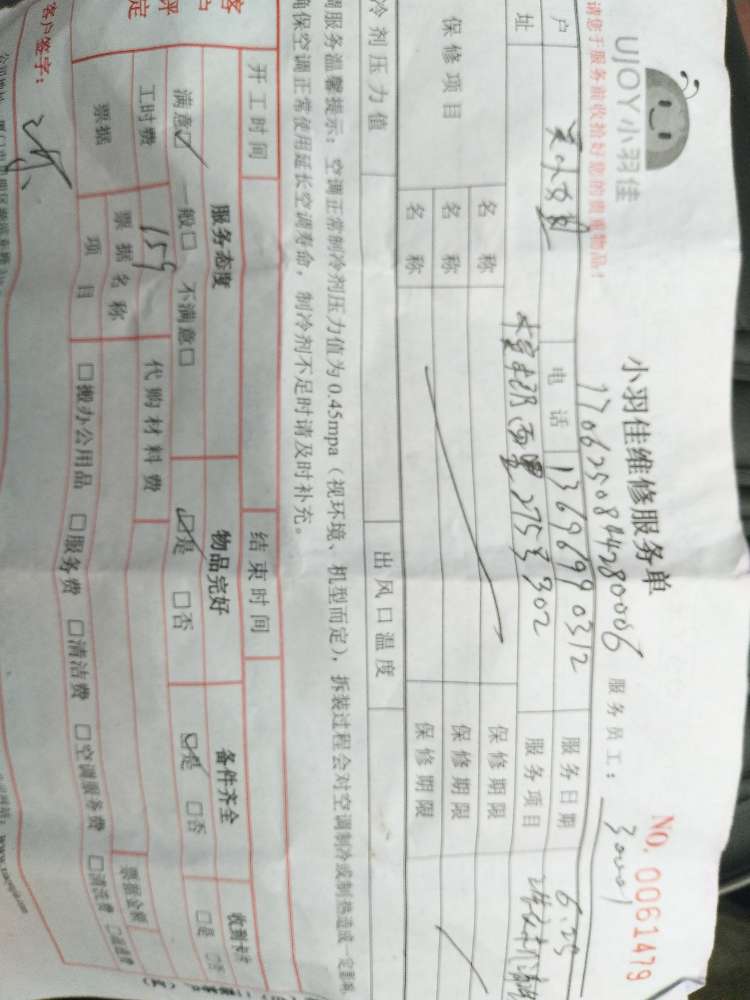 UJOY小羽佳
小羽佳维修服务单
No. 0061479
请您于服务前收拾好您的贵重物品!
1706250844280006
服务员工: 30001
户
电话 13696990312
服务日期 6.25
址
275号302
服务项目
保修项目
名称
保修期限
名称
保修期限
名称
保修期限
冷剂压力值
出风口温度
调服务温馨提示: 空调正常制冷剂压力值为0.45mpa(视环境、机型而定), 拆装过程会对空调制冷或制热造成一定影响
确保空调正常使用延长空调寿命, 制冷剂不足时请及时补充。
开工时间
结束时间
客
户
评
定
服务态度
物品完好
备件齐全
收到卡片
满意☑ 一般□ 不满意□
☑是 □否
☑是 □否
□是 □否
工时费 159
代购材料费
票据
票据名称
票据金额
项目
□搬办公用品 □服务费 □清洁费 □空调服务费 □清洗费
客户签字: